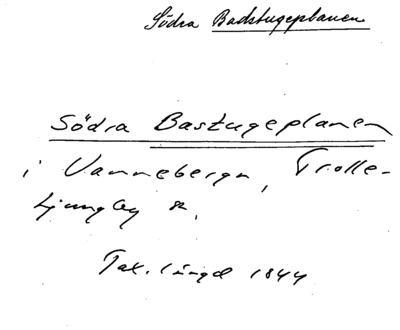 Södra Badstugeplanen
Södra Bastugeplanen
i Vannebergn, Trolle-
Ljungby sn.
Tax. längd 1844